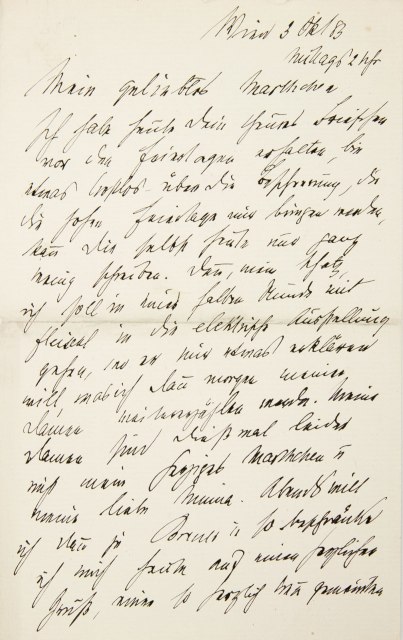 Wien 3 Okt 83
Mittags 2 Uhr
Mein geliebtes Marthchen
Ich habe heute Dein theures Briefchen
vor den Feiertagen erhalten, bin
etwas trostlos über die Absperrung, die
die hohen Feiertage uns bringen werden
kann Dir selbst heute nur ganz
wenig schreiben. Denn, mein Schatz,
ich soll in einer halben Stunde mit
Fleischl in die elektrische Ausstellung
gehen, wo er mir etwas erklären
will, was ich dann morgen meinen
Damen weitererzählen werde. Meine
Damen sind diesmal leider
nicht mein herziges Marthchen u
meine liebe Minna. Abends will
ich dann zu Breuer u so beschränke
ich mich heute auf einen herzlichen
Gruß, einen so herzlich treu gemeinten